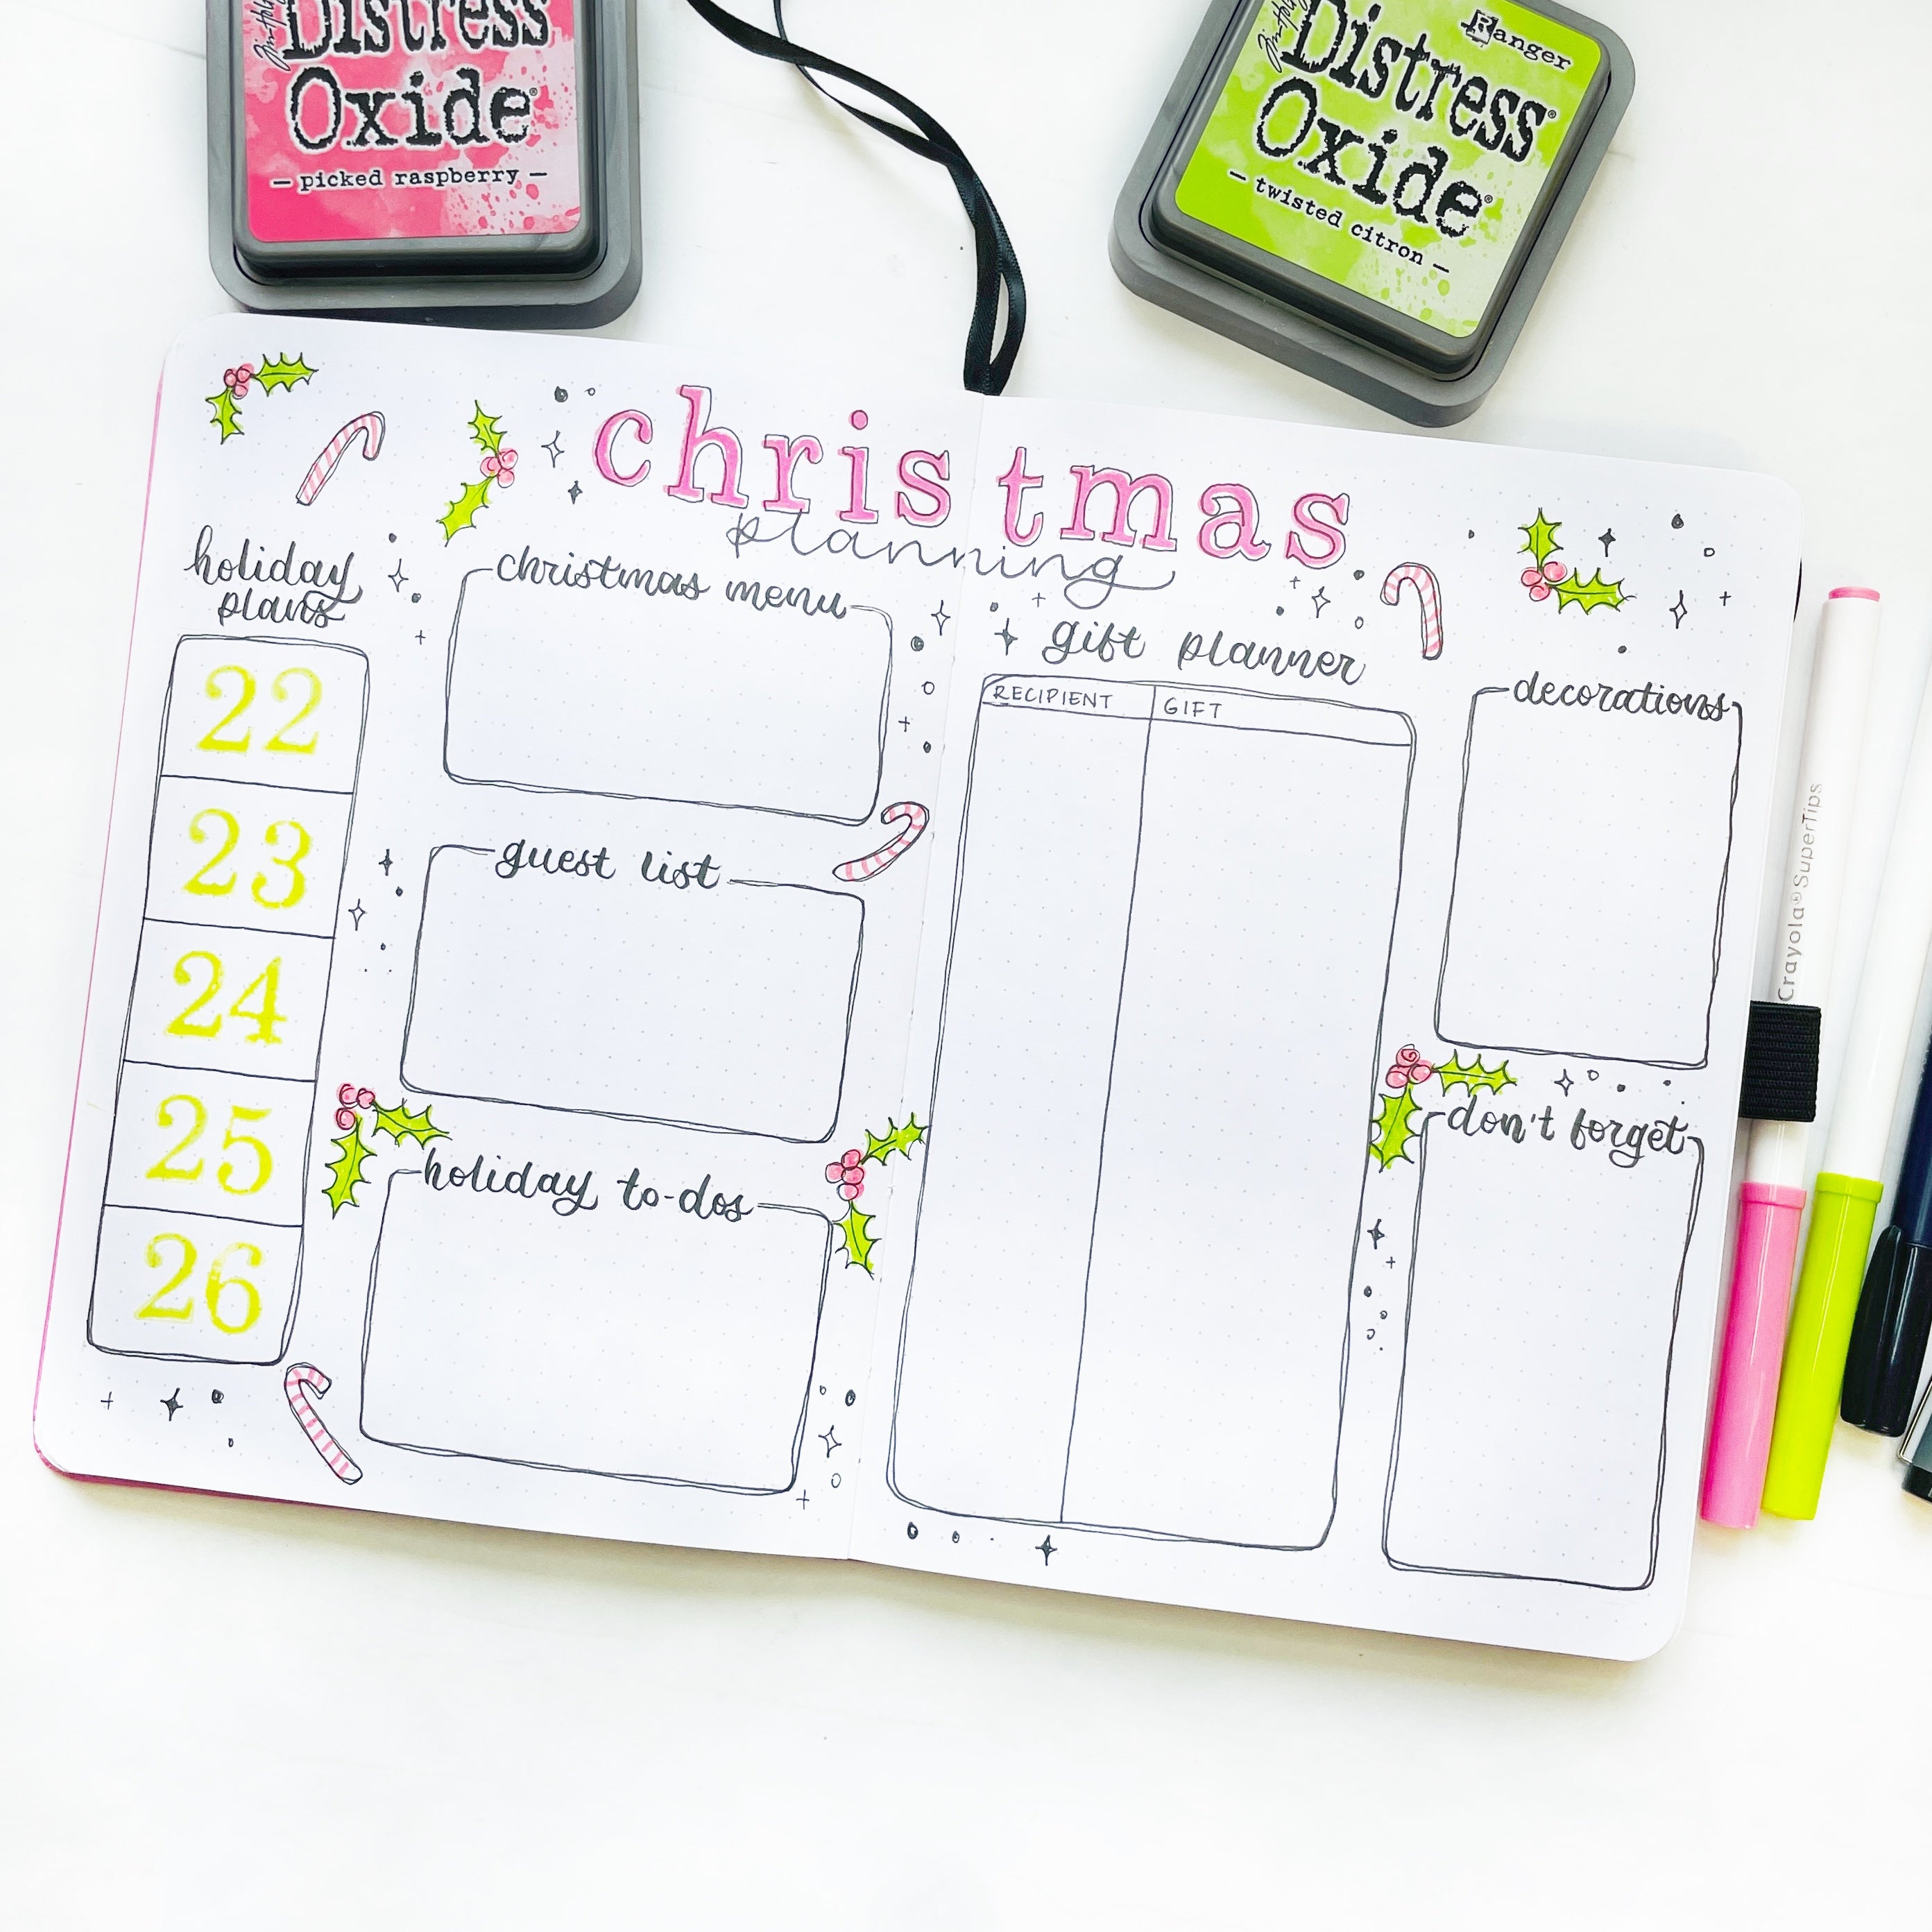 Tim Holtz
Distress
Oxide®
— picked raspberry —
Tim Holtz
Ranger
Distress®
Oxide®
— twisted citron —
christmas
planning
holiday
plans
22
23
24
25
26
christmas menu
guest list
holiday to-dos
gift planner
RECIPIENT
GIFT
decorations
don't forget
Crayola® SuperTips